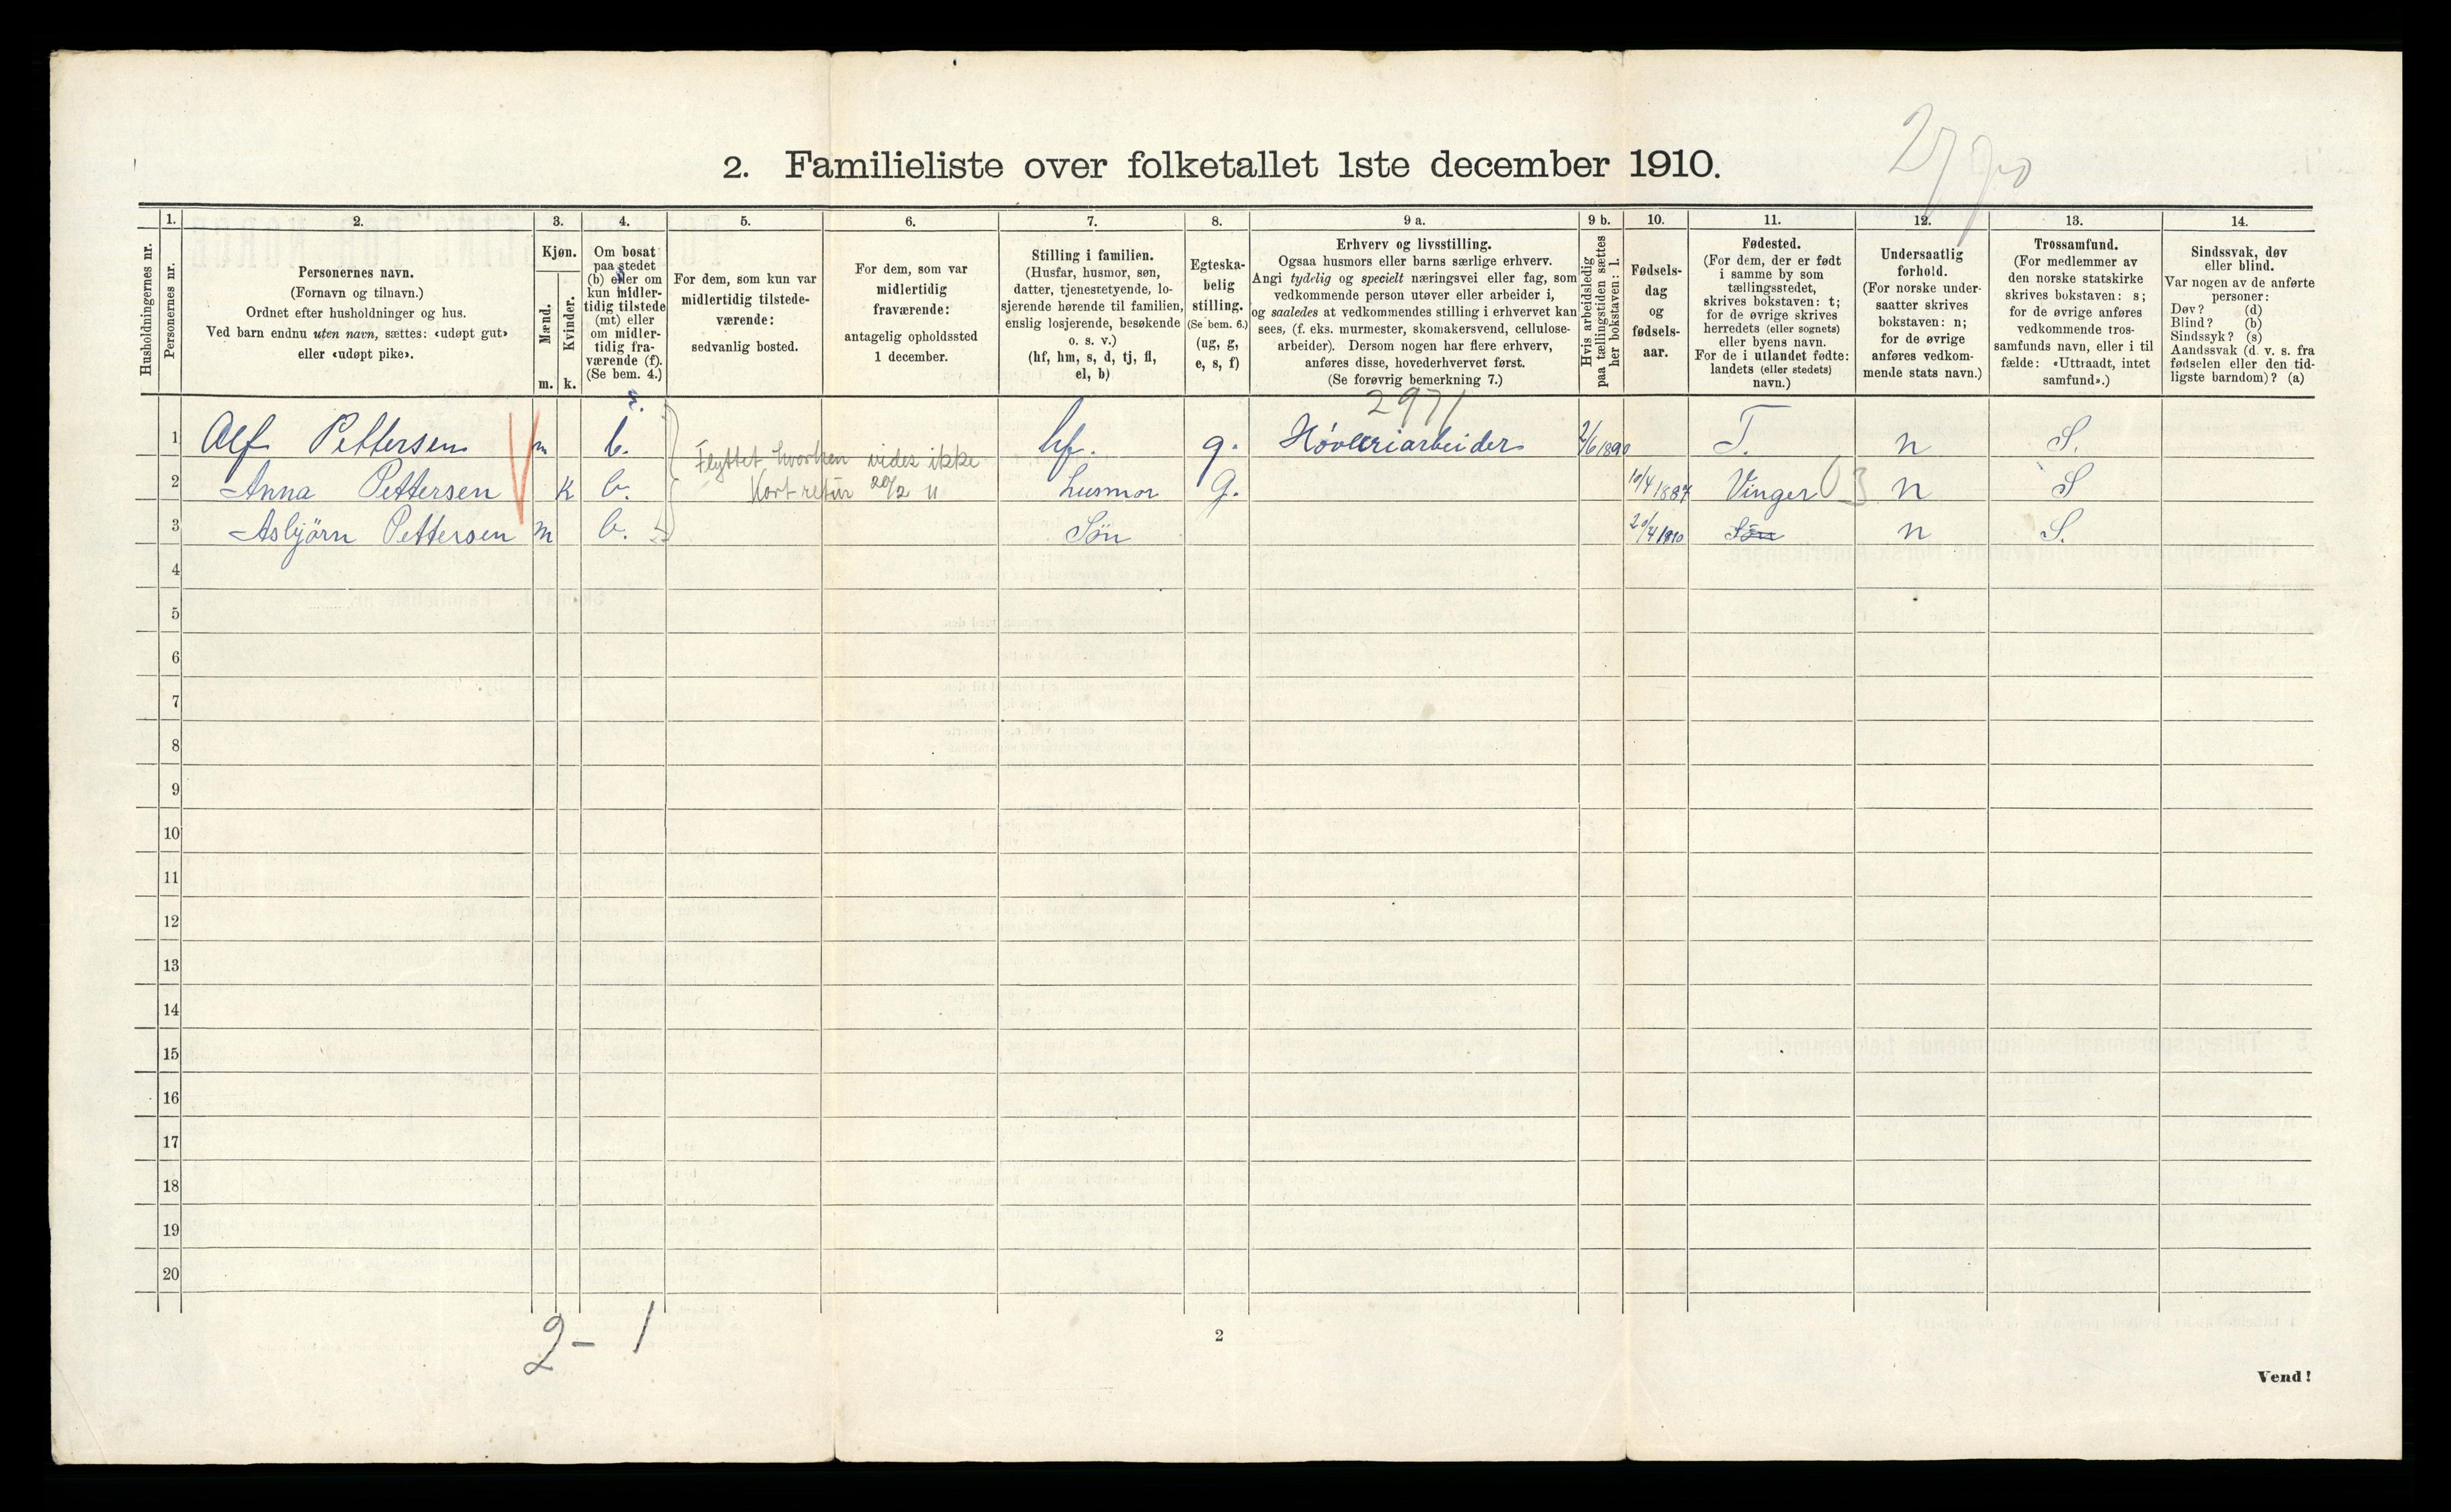 2790
2. Familieliste over folketallet 1ste december 1910.
1. 2. 3. 4. 5. 6. 7. 8. 9 a. 9 b. 10. 11. 12. 13. 14.
Husholdningernes nr.
Personernes nr.
Personernes navn.
(Fornavn og tilnavn.)
Ordnet efter husholdninger og hus.
Ved barn endnu uten navn, sættes: «udøpt gut»
eller «udøpt pike».
Kjøn.
Mænd.
Kvinder.
m. k.
Om bosat
paa stedet
(b) eller om
kun midler-
tidig tilstede
(mt) eller
om midler-
tidig fra-
værende (f).
(Se bem. 4.)
For dem, som kun var
midlertidig tilstede-
værende:
sedvanlig bosted.
For dem, som var
midlertidig
fraværende:
antagelig opholdssted
1 december.
Stilling i familien.
(Husfar, husmor, søn,
datter, tjenestetyende, lo-
sjerende hørende til familien,
enslig losjerende, besøkende
o. s. v.)
(hf, hm, s, d, tj, fl,
el, b)
Egteska-
belig
stilling.
(Se bem. 6.)
(ug, g,
e, s, f)
Erhverv og livsstilling.
Ogsaa husmors eller barns særlige erhverv.
Angi tydelig og specielt næringsvei eller fag, som
vedkommende person utøver eller arbeider i,
og saaledes at vedkommendes stilling i erhvervet kan
sees, (f. eks. murmester, skomakersvend, cellulose-
arbeider). Dersom nogen har flere erhverv,
anføres disse, hovederhvervet først.
(Se forøvrig bemerkning 7.)
Hvis arbeidsledig
paa tællingstiden sættes
her bokstaven: l.
Fødsels-
dag
og
fødsels-
aar.
Fødested.
(For dem, der er født
i samme by som
tællingsstedet,
skrives bokstaven: t;
for de øvrige skrives
herredets (eller sognets)
eller byens navn.
For de i utlandet fødte:
landets (eller stedets)
navn.)
Undersaatlig
forhold.
(For norske under-
saatter skrives
bokstaven: n;
for de øvrige
anføres vedkom-
mende stats navn.)
Trossamfund.
(For medlemmer av
den norske statskirke
skrives bokstaven: s;
for de øvrige anføres
vedkommende tros-
samfunds navn, eller i til
fælde: «Uttraadt, intet
samfund».)
Sindssvak, døv
eller blind.
Var nogen av de anførte
personer:
Døv? (d)
Blind? (b)
Sindssyk? (s)
Aandssvak (d. v. s. fra
fødselen eller den tid-
ligste barndom)? (a)
2971
1 Alf Pettersen m b. hf. g. Høvleriarbeider 2/6 1890 T. n S.
Flyttet hvorhen vides ikke
2 Anna Pettersen k b. Kort retur 20/2 11 husmor g. 10/4 1887 Vinger 03 n S
3 Asbjörn Pettersen m b. Sön 20/4 1910 Sön n S.
4
5
6
7
8
9
10
11
12
13
14
15
16
17
18
19
20
2 - 1
2
Vend!